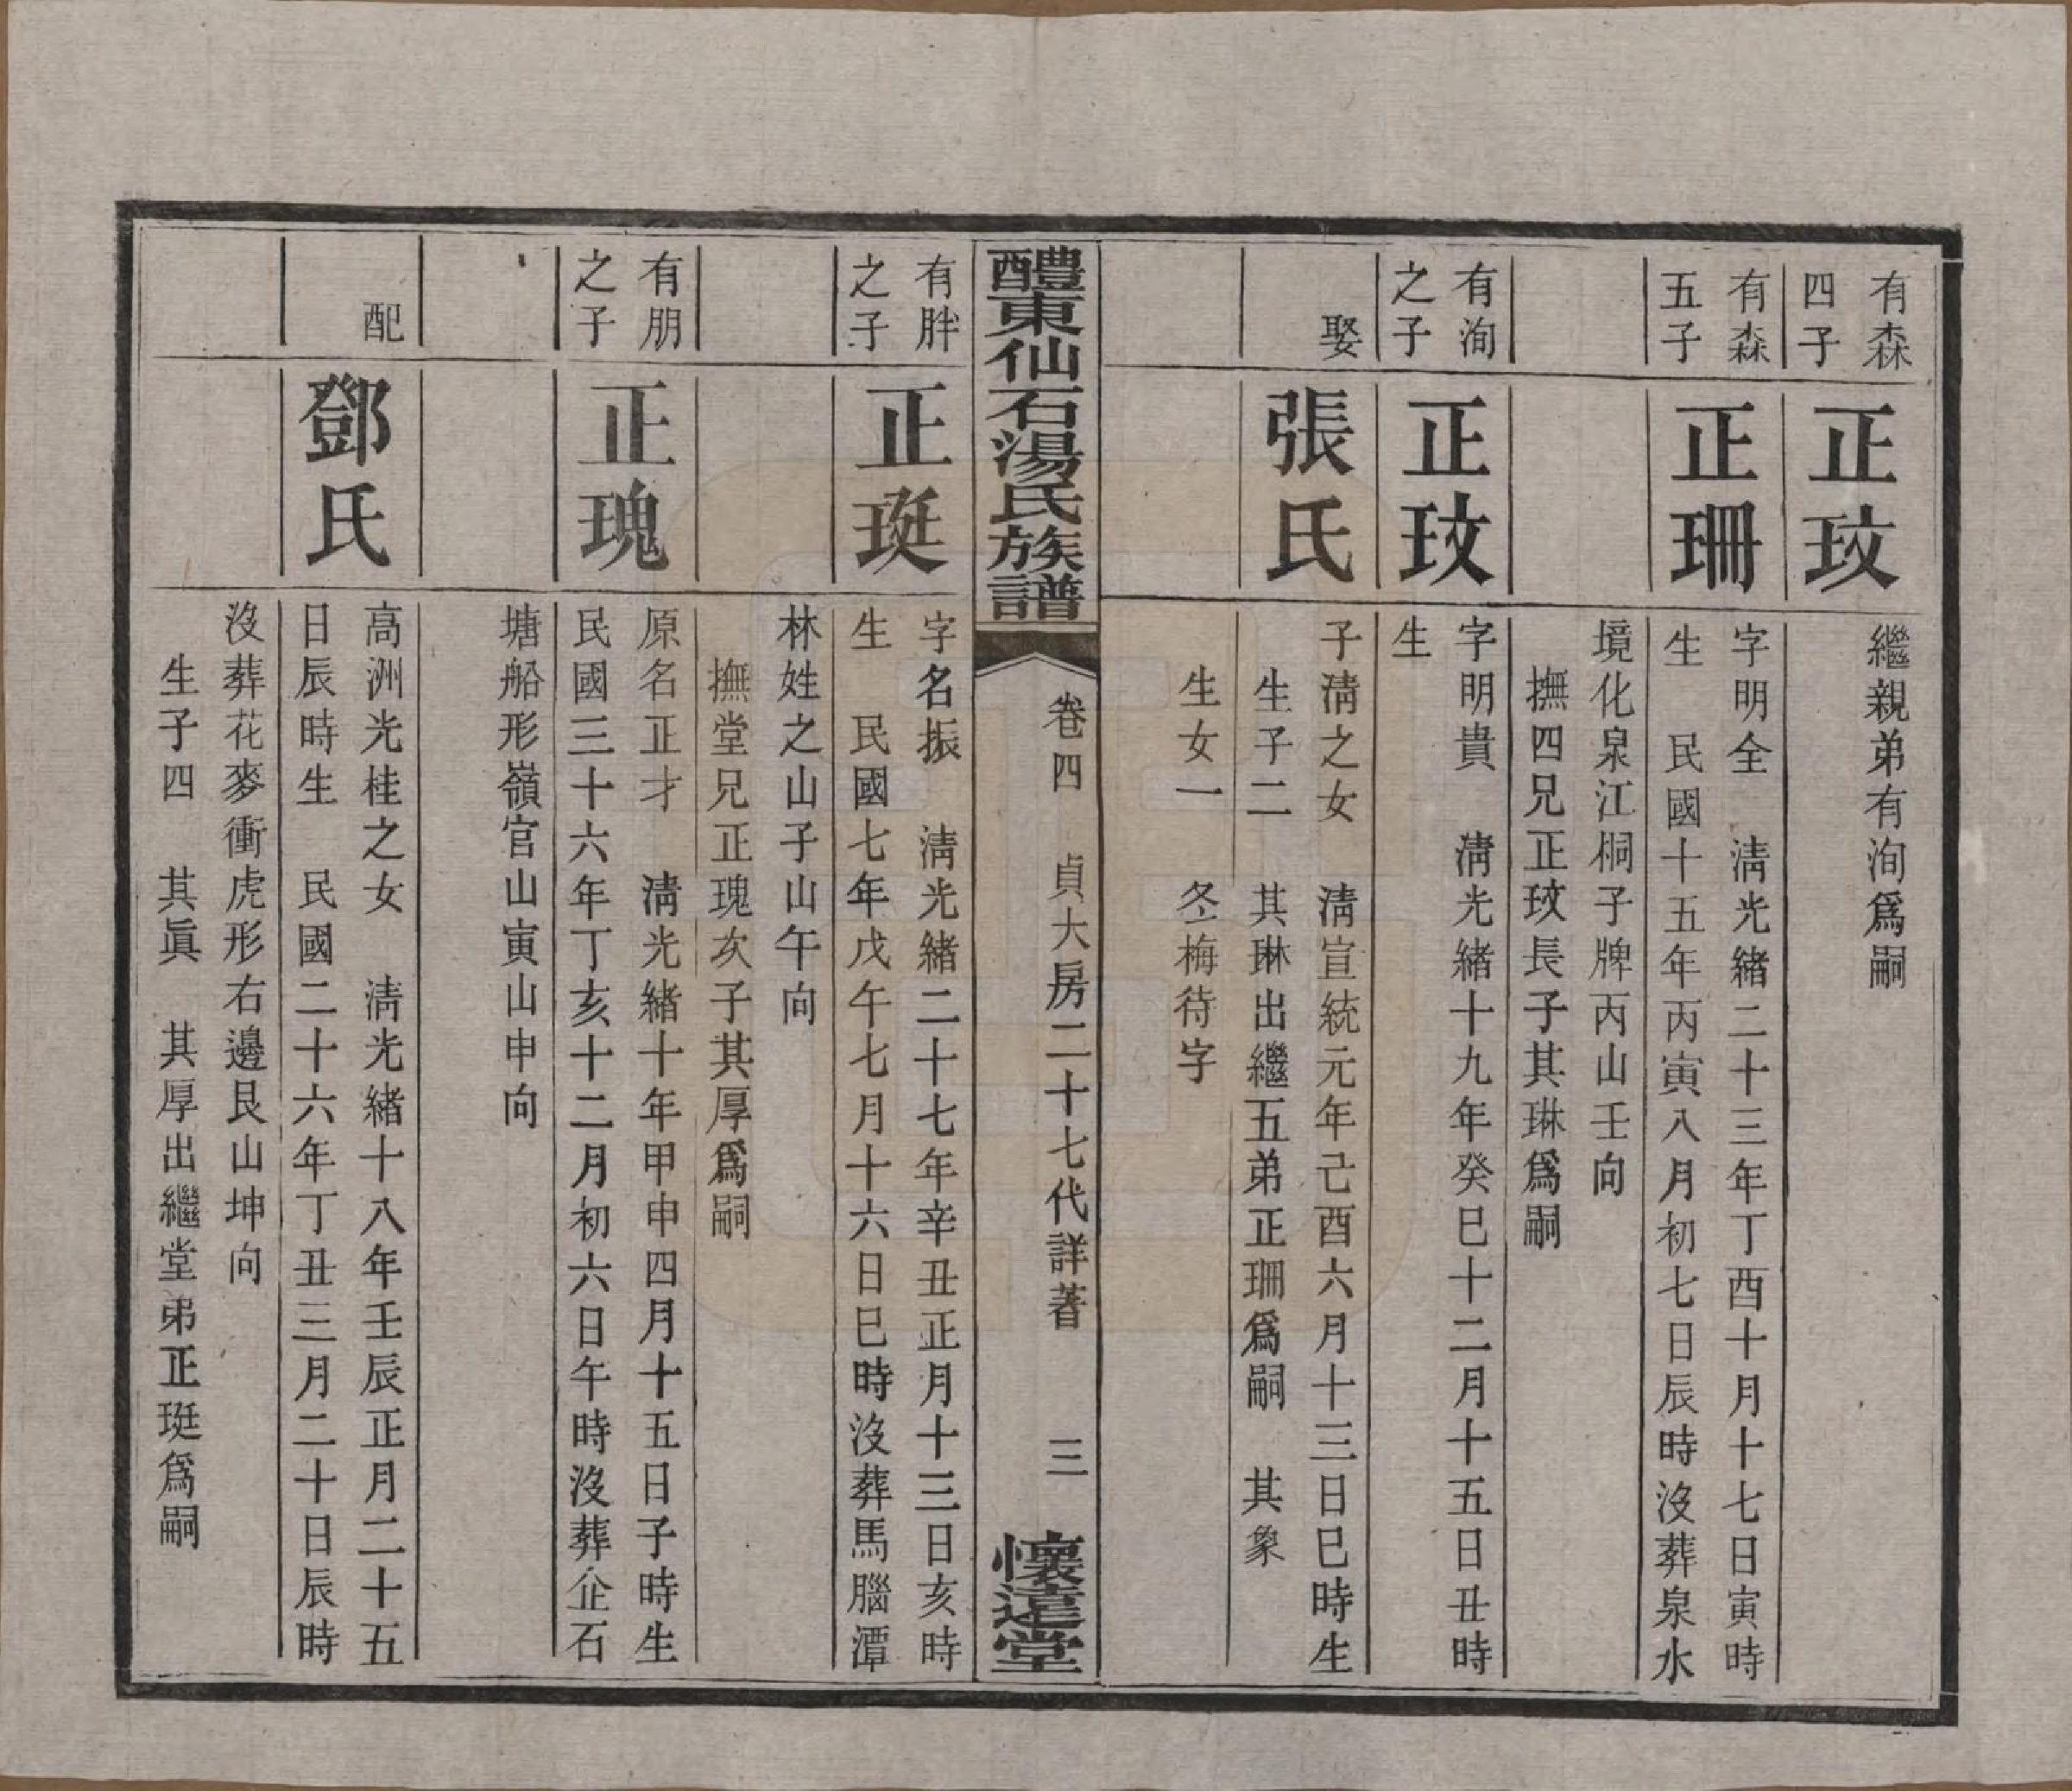 有森
四子
正玟
繼親弟有洵爲嗣
有森
五子
正珊
字明全　淸光緒二十三年丁酉十月十七日寅時
生　民國十五年丙寅八月初七日辰時沒葬泉水
境化泉江桐子牌丙山壬向
撫四兄正玟長子其琳爲嗣
有洵
之子
正玟
字明貴　淸光緒十九年癸巳十二月十五日丑時
生
娶
張氏
子淸之女　淸宣統元年己酉六月十三日巳時生
生子二　其琳出繼五弟正珊爲嗣　其象
生女一　冬梅待字
醴東仙石湯氏族譜
卷四　貞大房二十七代詳著　三
懷遠堂
有胖
之子
正珽
字名振　淸光緒二十七年辛丑正月十三日亥時
生　民國七年戊午七月十六日巳時沒葬馬腦潭
林姓之山子山午向
撫堂兄正瑰次子其厚爲嗣
有朋
之子
正瑰
原名正才　淸光緒十年甲申四月十五日子時生
民國三十六年丁亥十二月初六日午時沒葬企石
塘船形嶺官山寅山申向
配
鄧氏
高洲光桂之女　淸光緒十八年壬辰正月二十五
日辰時生　民國二十六年丁丑三月二十日辰時
沒葬花麥衝虎形右邊艮山坤向
生子四　其眞　其厚出繼堂弟正珽爲嗣